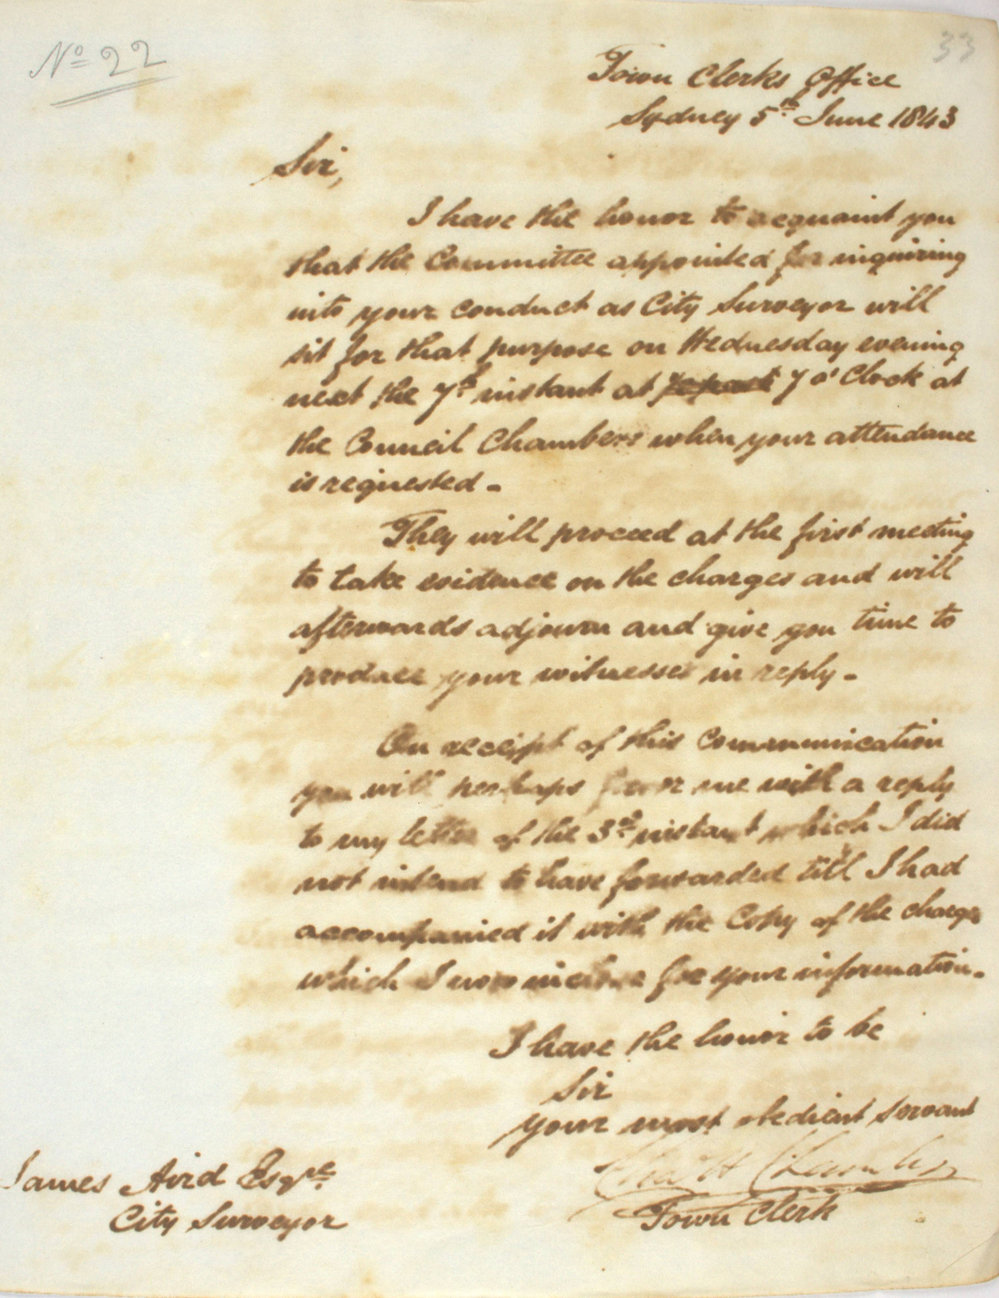 No 22
33
Town Clerks Office
Sydney 5th June 1843
Sir,
I have the honor to acquaint you
that the Committee appointed for inquiring
into your conduct as City Surveyor will
sit for that purpose on Wednesday evening
next the 7th instant at 7 o' Clock at
the Council Chambers when your attendance
is requested -
They will proceed at the first meeting
to take evidence on the charges and will
afterwards adjourn and give you time to
produce your witnesses in reply -
On receipt of this communication
you will perhaps favor me with a reply
to my letter of the 3rd instant which I did
not intend to have forwarded till I had
accompanied it with the Copy of the charges
which I now inclose for your information -
I have the honor to be
Sir
your most obedient servant
Chas H Chambers
Town Clerk
James Aird Esqre
City Surveyor